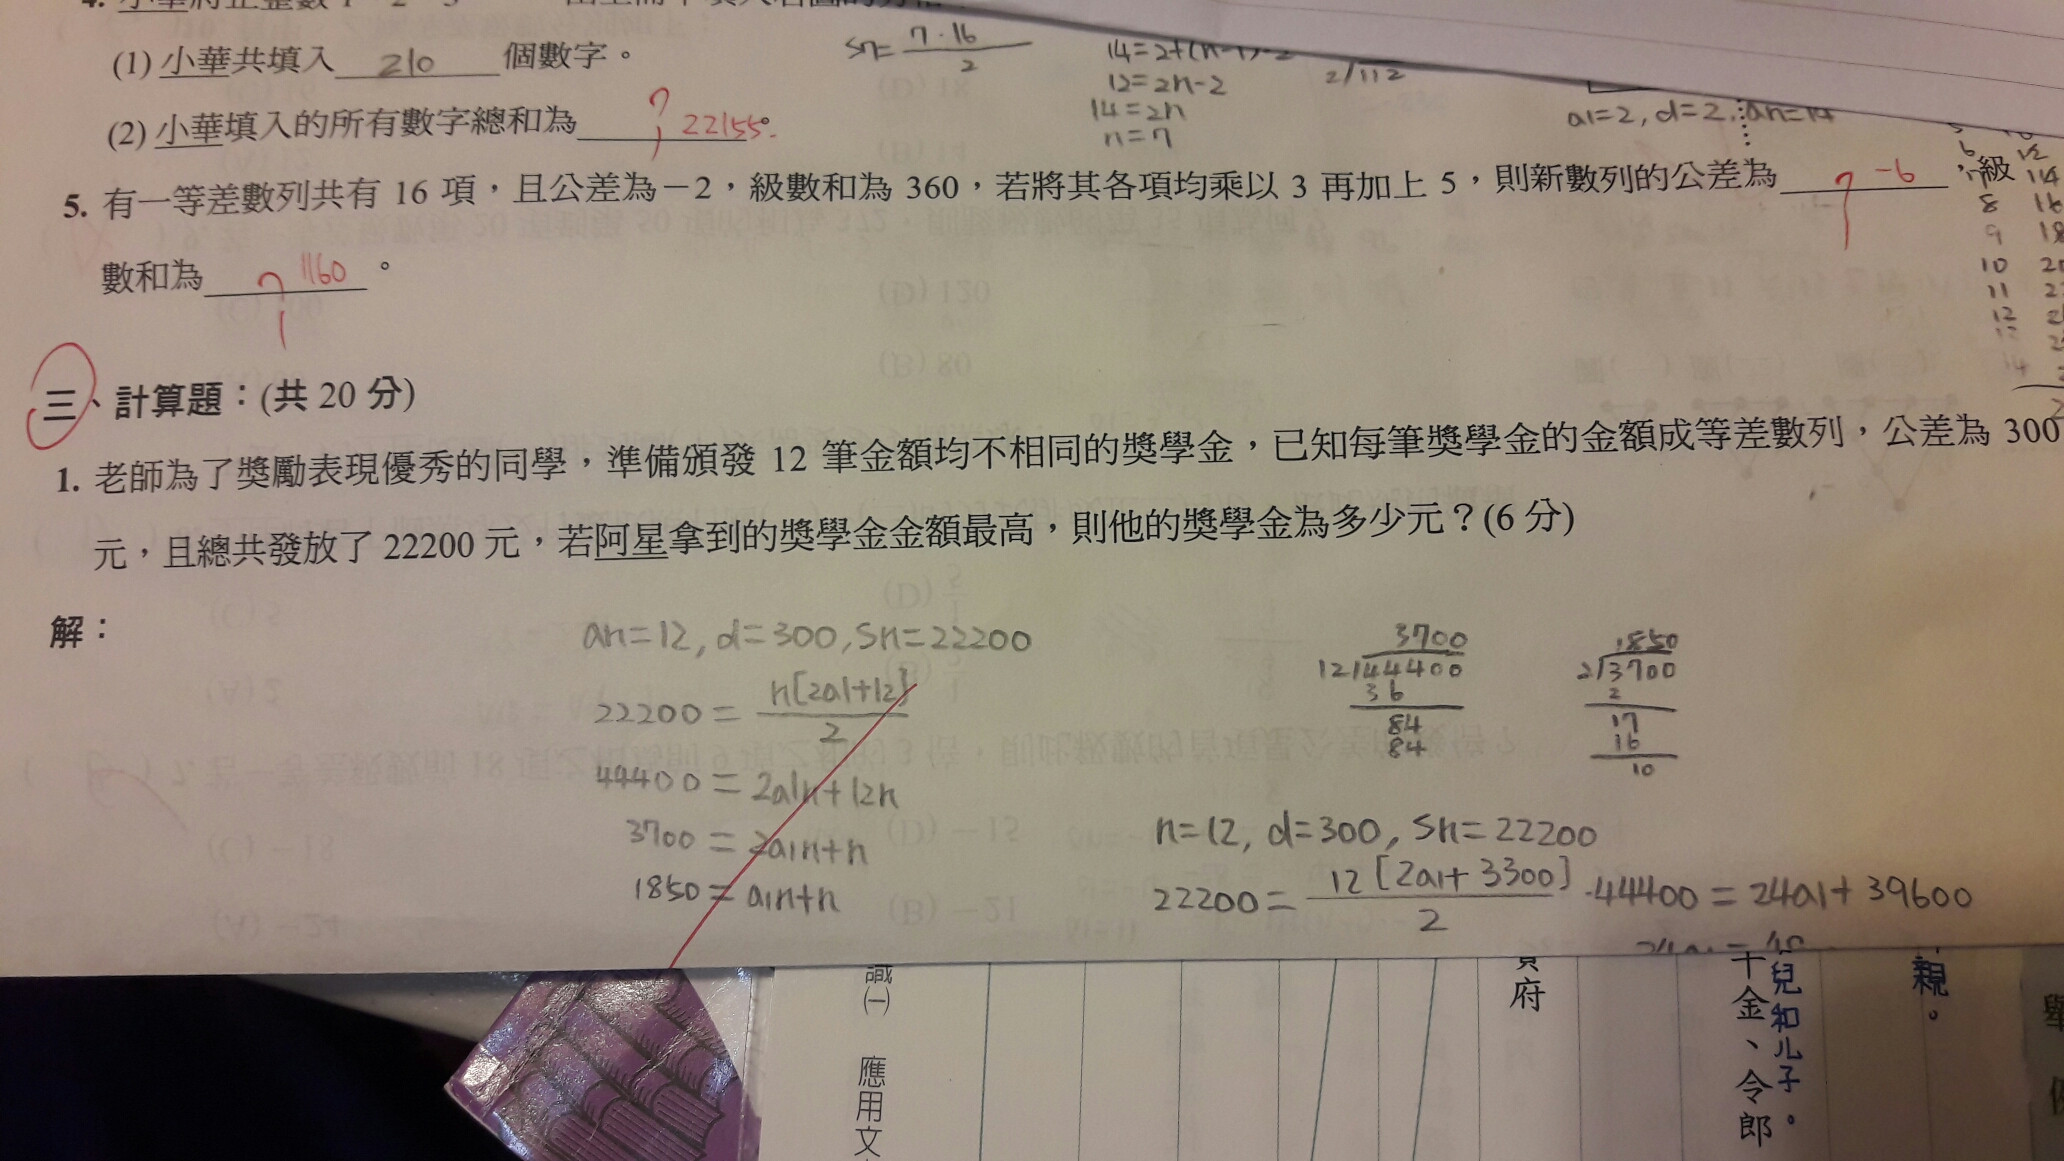 (1) 小華共填入 210 個數字。
Sn= 7·16 / 2
12=2n-2
14=2n
n=7
a1=2, d=2, an=14
(2) 小華填入的所有數字總和為 ? 22155。
5. 有一等差數列共有 16 項，且公差為－2，級數和為 360，若將其各項均乘以 3 再加上 5，則新數列的公差為 ? -6 ，級
數和為 ? 1160 。
6 12
14
8 16
9 18
10
11
12
三、計算題：(共 20 分)
1. 老師為了獎勵表現優秀的同學，準備頒發 12 筆金額均不相同的獎學金，已知每筆獎學金的金額成等差數列，公差為 300
元，且總共發放了 22200 元，若阿星拿到的獎學金金額最高，則他的獎學金為多少元？(6 分)
解：
an=12, d=300, Sn=22200
22200 = n[2a1+12] / 2
44400 = 2a1n+12n
3700 = 2a1n+n
1850 = a1n+n
3700
12/44400
36
84
84
1850
2/3700
2
17
16
10
n=12, d=300, Sn=22200
22200 = 12[2a1+3300] / 2 44400 = 24a1+39600
識㈠
應用文
府
千金、令郎
兒和兒子。
親。